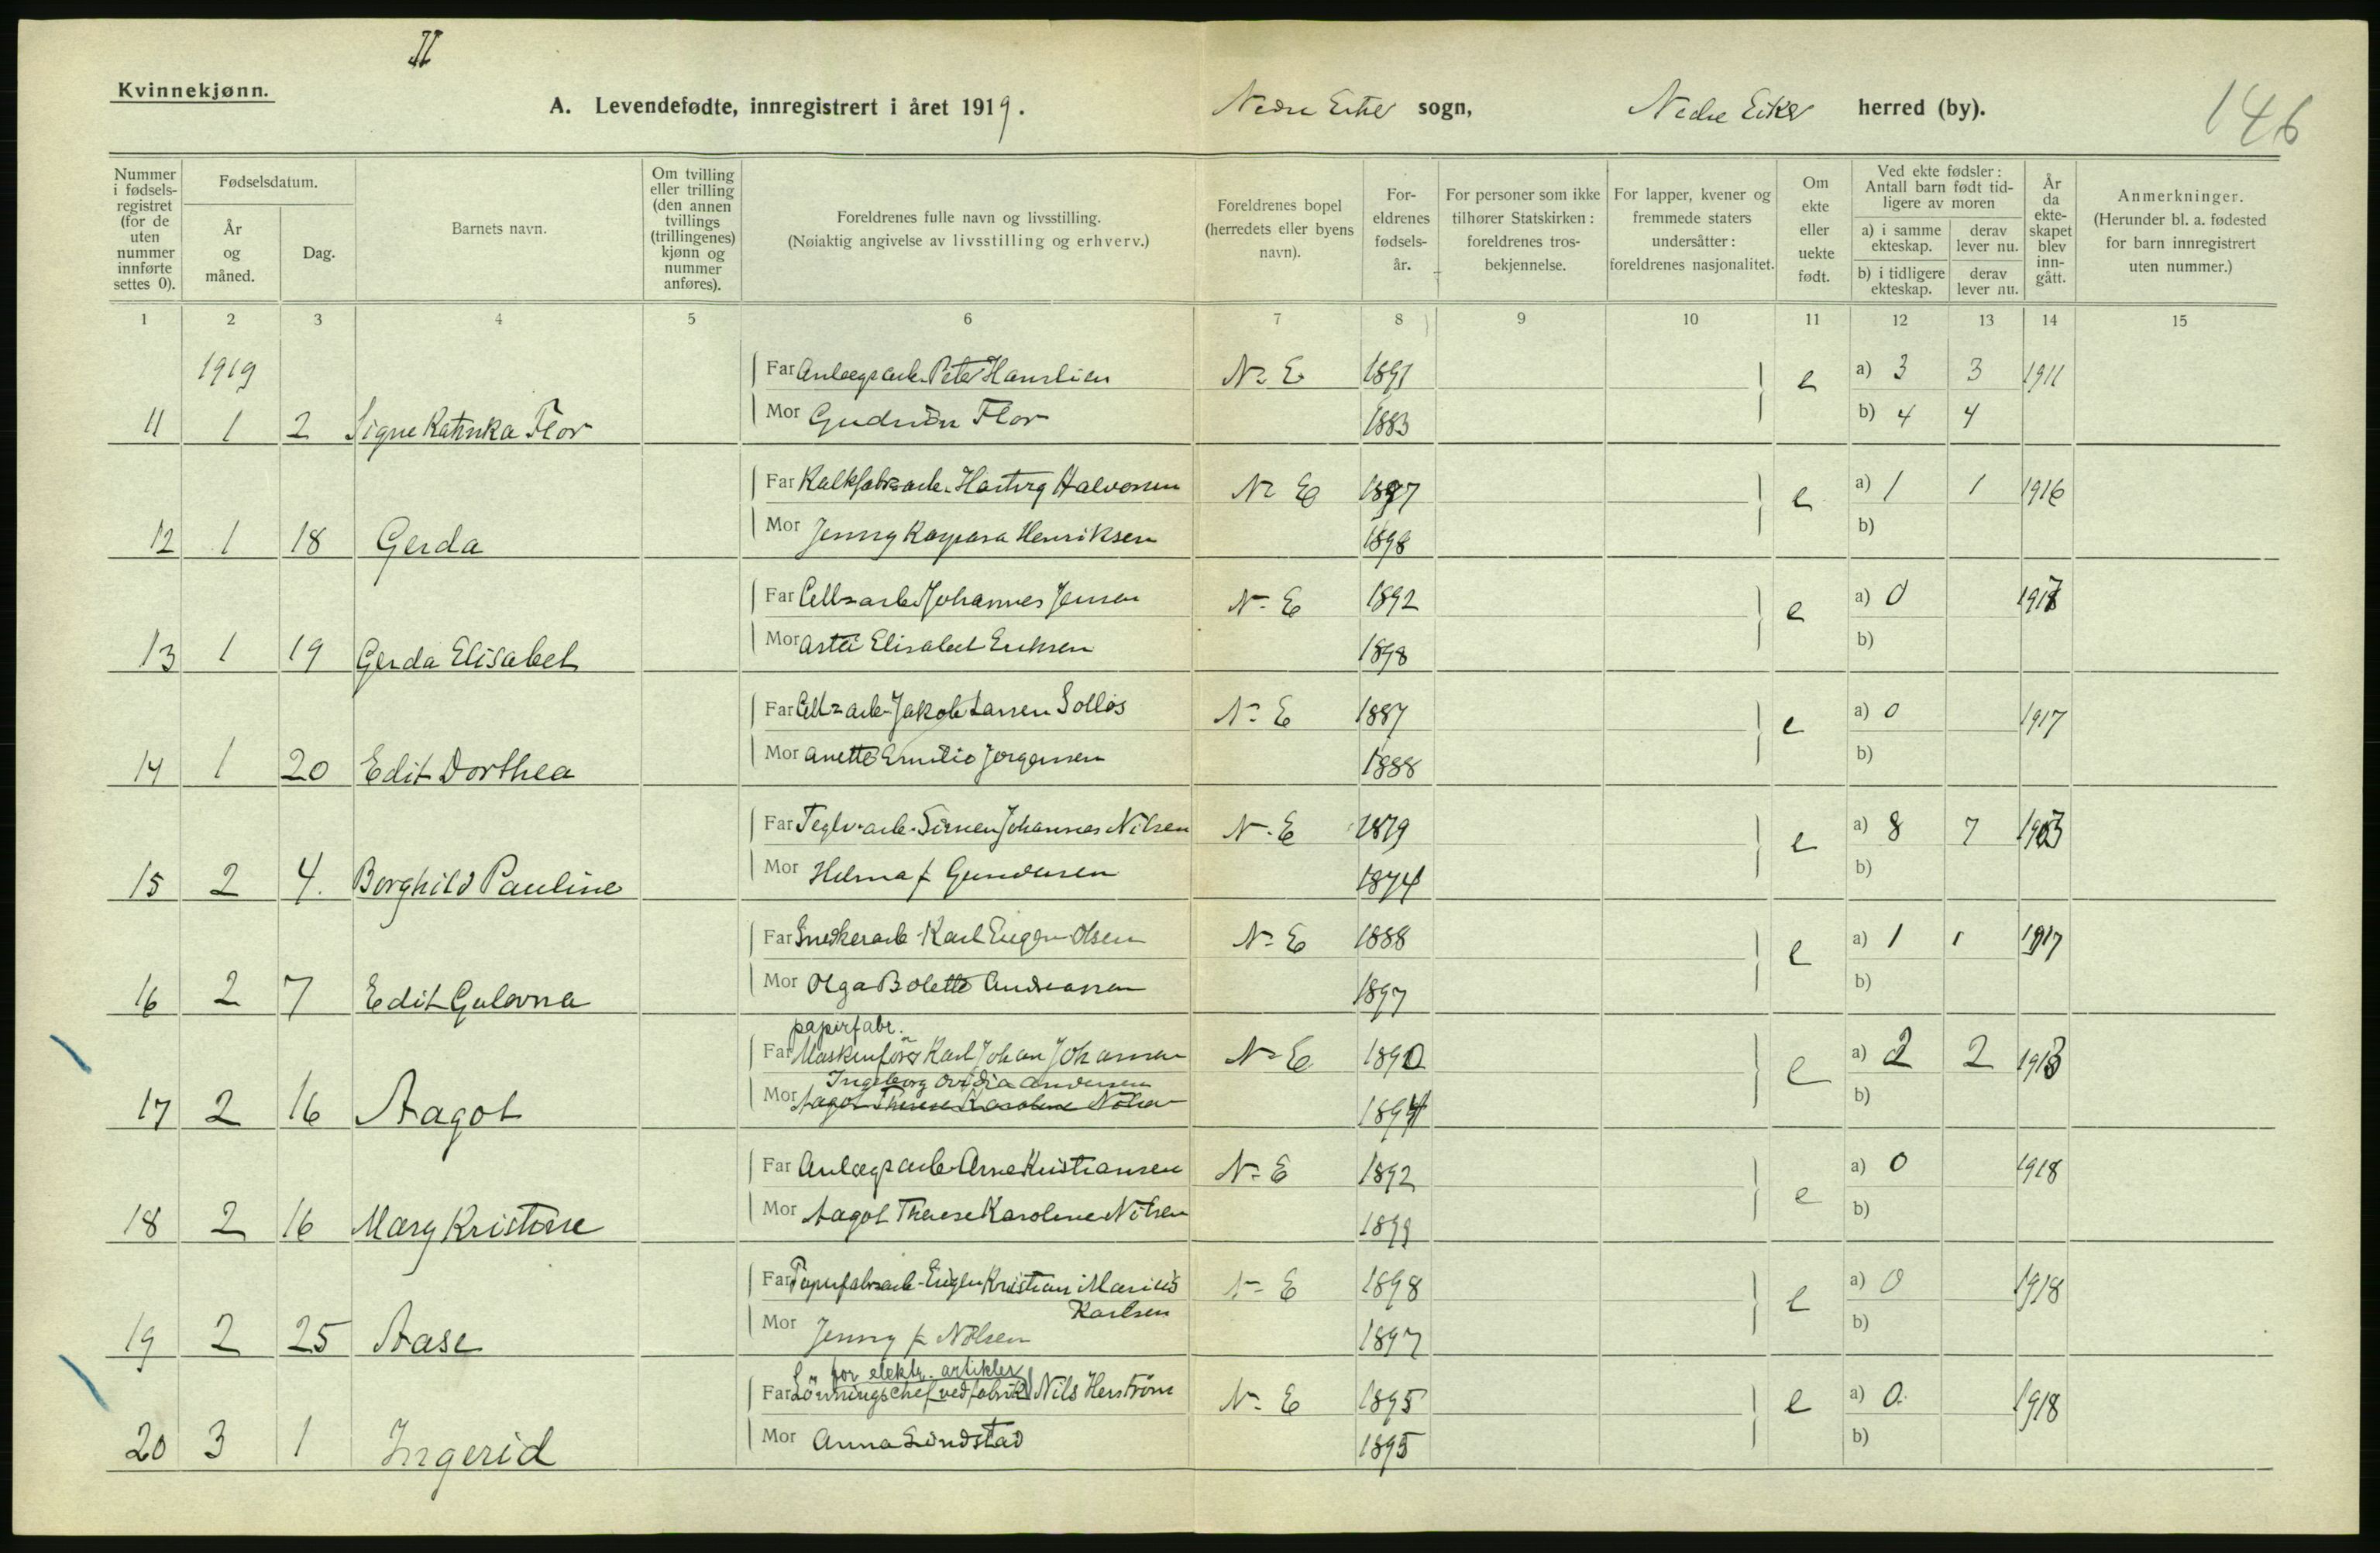 II
Kvinnekjønn.
A. Levendefødte, innregistrert i året 1919. Nedre Eiker sogn, Nedre Eiker herred (by).
146
Nummer i fødsels-registret (for de uten nummer innførte settes 0).
Fødselsdatum.
År og måned.
Dag.
Barnets navn.
Om tvilling eller trilling (den annen tvillings (trillingenes) kjønn og nummer anføres).
Foreldrenes fulle navn og livsstilling.
(Nøiaktig angivelse av livsstilling og erhverv.)
Foreldrenes bopel (herredets eller byens navn).
For-eldrenes fødsels-år.
For personer som ikke tilhører Statskirken: foreldrenes tros-bekjennelse.
For lapper, kvener og fremmede staters undersåtter: foreldrenes nasjonalitet.
Om ekte eller uekte født.
Ved ekte fødsler: Antall barn født tid-ligere av moren
a) i samme ekteskap.
derav lever nu.
b) i tidligere ekteskap.
derav lever nu.
År da ekte-skapet blev inn-gått.
Anmerkninger.
(Herunder bl. a. fødested for barn innregistrert uten nummer.)
1 2 3 4 5 6 7 8 9 10 11 12 13 14 15
1919
Far Anlægsarb. Peter Hanslien N. E 1891 e a) 3 3 1911
11 1 2 Signe Katinka Flor Mor Gudrun Flor 1883 b) 4 4
Far Kalkfabr.arb. Hartvig Halvorsen N. E 1897 e a) 1 1 1916
12 1 18 Gerda Mor Jenny Kaspara Henriksen 1898 b)
Far Cell.arb. Johannes Jensen N. E 1892 e a) 0
13 1 19 Gerda Elisabet Mor Asta Elisabet Eriksen 1898 b)
Far Cell.arb. Jakob Larsen Solløs N. E 1887 e a) 0 1917
14 1 20 Edit Dorthea Mor Anette Emilie Jørgensen 1888 b)
Far Teglv.arb. Simen Johannes Nilsen N. E 1879 e a) 8 7 1903
15 2 4. Borghild Pauline Mor Helma f. Gundersen 1874 b)
Far Snekkerarb. Karl Eugen Olsen N. E 1888 e a) 1 1 1917
16 2 7 Edit Gulovna Mor Olga Bolette Andreassen 1897 b)
papirfabr.
Far Maskinfører Karl Johan Johansen N. E 1890 e a) 2 2 1913
Ingeborg Ovidia Andersen
17 2 16 Aagot Mor Aagot Therese Karoline Nilsen 1894 b)
Far Anlægsarb. Arne Kristiansen N. E 1892 e a) 0 1918
18 2 16 Mary Kristine Mor Aagot Therese Karoline Nilsen 1899 b)
Far Papirfabr.arb. Eugen Kristian Marius N. E 1898 e a) 0 1918
Karlsen
19 2 25 Aase Mor Jenny f. Nilsen 1897 b)
for elektr. artikler
Far Lønningschef ved fabrik Nils Herstrøm N. E 1895 e a) 0 1918
20 3 1 Ingerid Mor Anna Lindstad 1895 b)